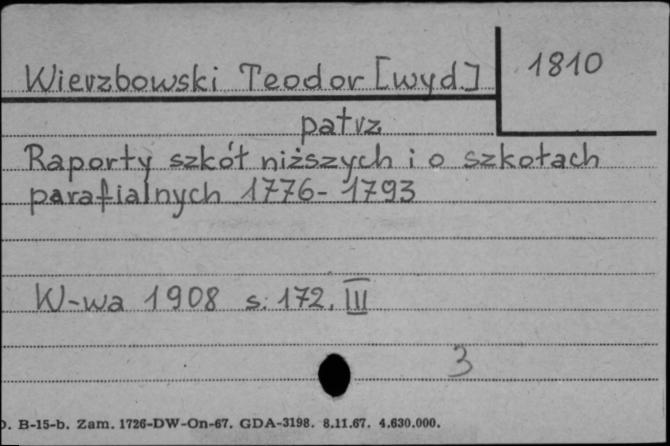 Wierzbowski Teodor [wyd.] 1810
patrz
Raporty szkół niższych i o szkołach
parafialnych 1776-1793
W-wa 1908 s. 172, III
3
B-15-b. Zam. 1726-DW-On-67. GDA-3198. 8.11.67. 4.630.000.